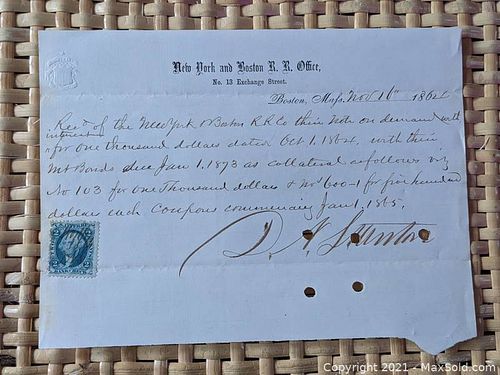 New York and Boston R. R. Office,
No. 13 Exchange Street.
Boston, Mass. Nov 16th 1864
Rec'd of the New York & Boston R R Co their Note on demand with
interest
for one thousand dollars dated Oct 1. 1864, with their
Mt Bonds due Jany 1. 1873 as collateral as follows viz
No 103 for one Thousand dollars & Nos 600-1 for five hundred
dollars each Coupons commencing Jany 1, 1865.
D. N.
Copyright 2021 - MaxSold.com